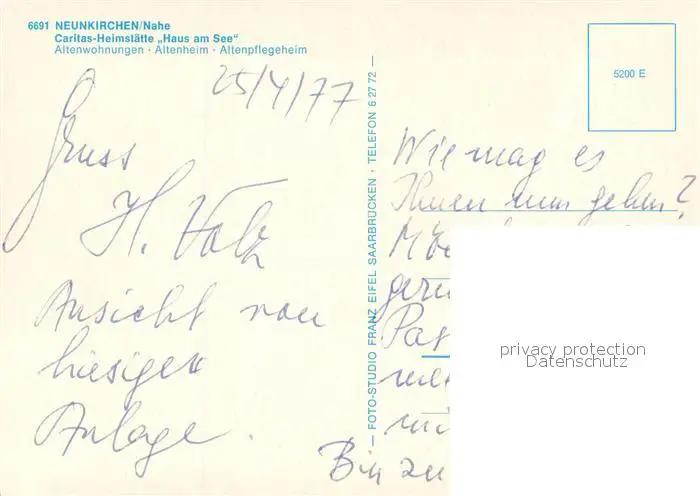 6691 NEUNKIRCHEN/Nahe
Caritas-Heimstätte „Haus am See"
Altenwohnungen · Altenheim · Altenpflegeheim
5200 E
25/4/77
Gruss
H. Volz
Ansicht von
hiesiger
Anlage.
— FOTO-STUDIO FRANZ EIFEL SAARBRÜCKEN · TELEFON 6 27 72 —
Wie mag es
Ihnen nun gehen?
Bin zu
privacy protection
Datenschutz